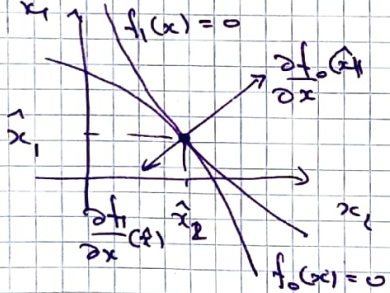 x₁
f₁(x)=0
∂f₀(x̂)
∂x
x̂₁
∂f₁
∂x
(x̂)
x̂₂
x₂
f₀(x)=0